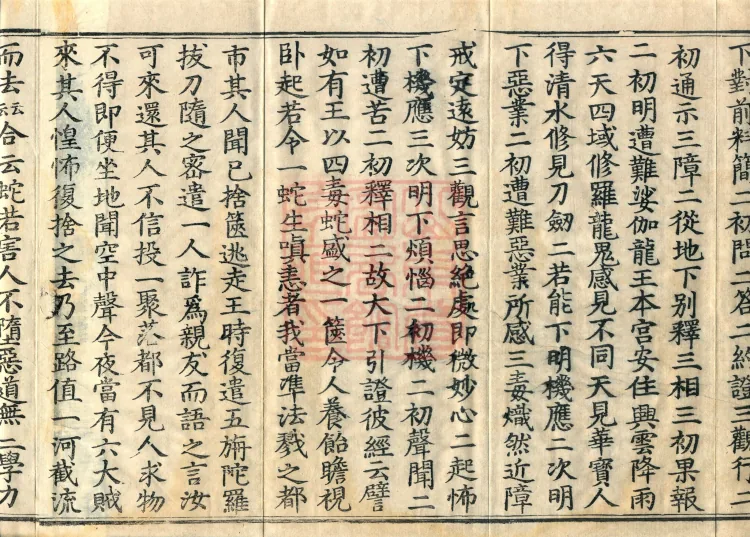 下對前料簡二初問二答二經證三觀行二
初通示三障二從地下別釋三相三初果報
二初明遭難娑伽龍王本宮安住興雲降雨
六天四域修羅龍鬼感見不同天見華寶人
得清水修見刀劒二若能下明機應二次明
下惡業二初遭難惡業所感三毒熾然近障
戒定遠妨三觀言思絶處即微妙心二起怖
下機應三次明下煩惱二初機二初聲聞二
初遭苦二初釋相二故大下引證彼經云譬
如有王以四毒蛇盛之一篋令人養飴瞻視
卧起若令一蛇生嗔恚者我當準法戮之都
市其人聞已捨篋逃走王時復遣五旃陀羅
拔刀隨之密遣一人詐爲親友而語之言汝
可來還其人不信投一聚落都不見人求物
不得即便坐地聞空中聲今夜當有六大賊
來其人惶怖復捨之去乃至路值一河截流
而去云云合云蛇若害人不墮惡道無三學力